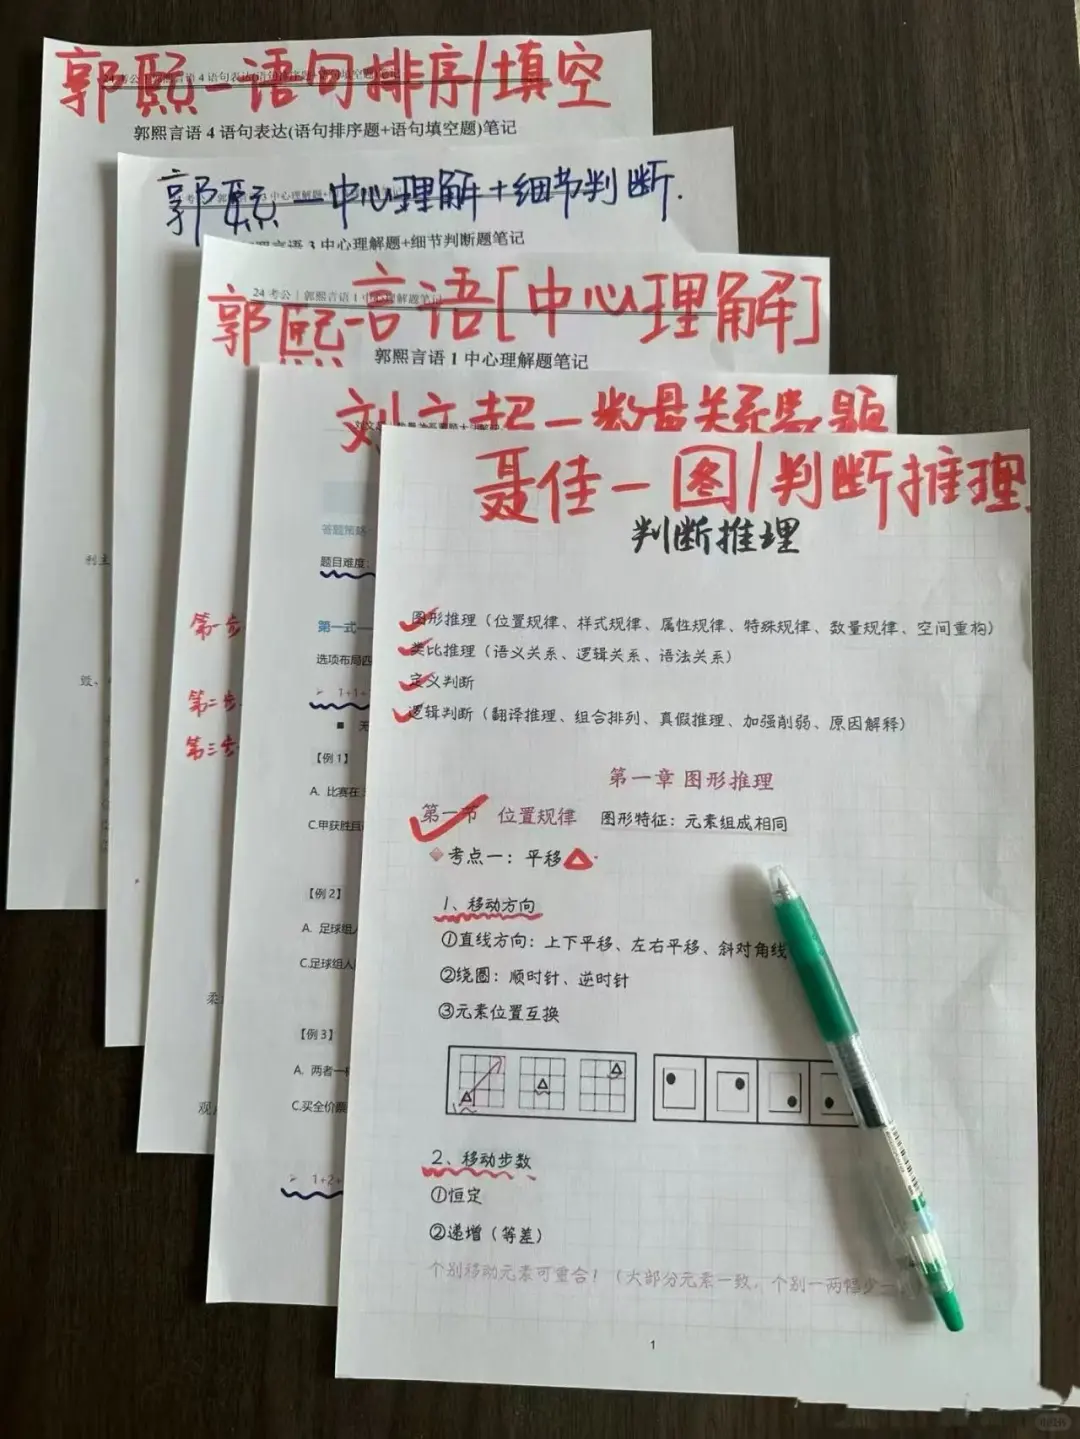 郭熙-语句排序/填空
郭熙言语4语句表达(语句排序题+语句填空题)笔记
郭熙-中心理解+细节判断.
言语3中心理解题+细节判断题笔记
24考公|郭熙言语1中心理解题笔记
郭熙-言语[中心理解]
郭熙言语1中心理解题笔记
刘文超-数量关系
聂佳-图/判断推理
判断推理
图形推理（位置规律、样式规律、属性规律、特殊规律、数量规律、空间重构）
类比推理（语义关系、逻辑关系、语法关系）
定义判断
逻辑判断（翻译推理、组合排列、真假推理、加强削弱、原因解释）
第一章 图形推理
第一节 位置规律 图形特征：元素组成相同
考点一：平移
1、移动方向
①直线方向：上下平移、左右平移、斜对角线
②绕圈：顺时针、逆时针
③元素位置互换
2、移动步数
①恒定
②递增（等差）
个别移动元素可重合！（大部分元素一致，个别一两幅少一
1
答题策略
题目难度：
第一式
选项布局四
1+1+
■ 无
【例1】
A. 比赛在
C.甲获胜且
【例2】
A. 足球组
C.足球组人
【例3】
A. 两者一
C.买全价票
1+2+
第一步
第二步
第三步
利主
毁、
柔
观